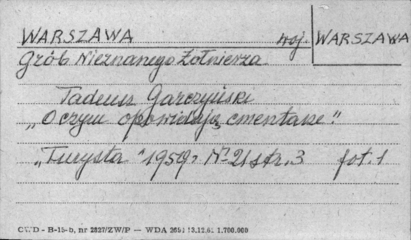 WARSZAWA woj. WARSZAWA
Grób Nieznanego Żołnierza
Tadeusz Garczyński
„O czym opowiadają cmentarze"
„Turysta" 1959 r. Nr 21 str. 3 fot. 1
CWD - B-15-b, nr 2837/ZW/P — WDA 265 13.12.61 1.700.000